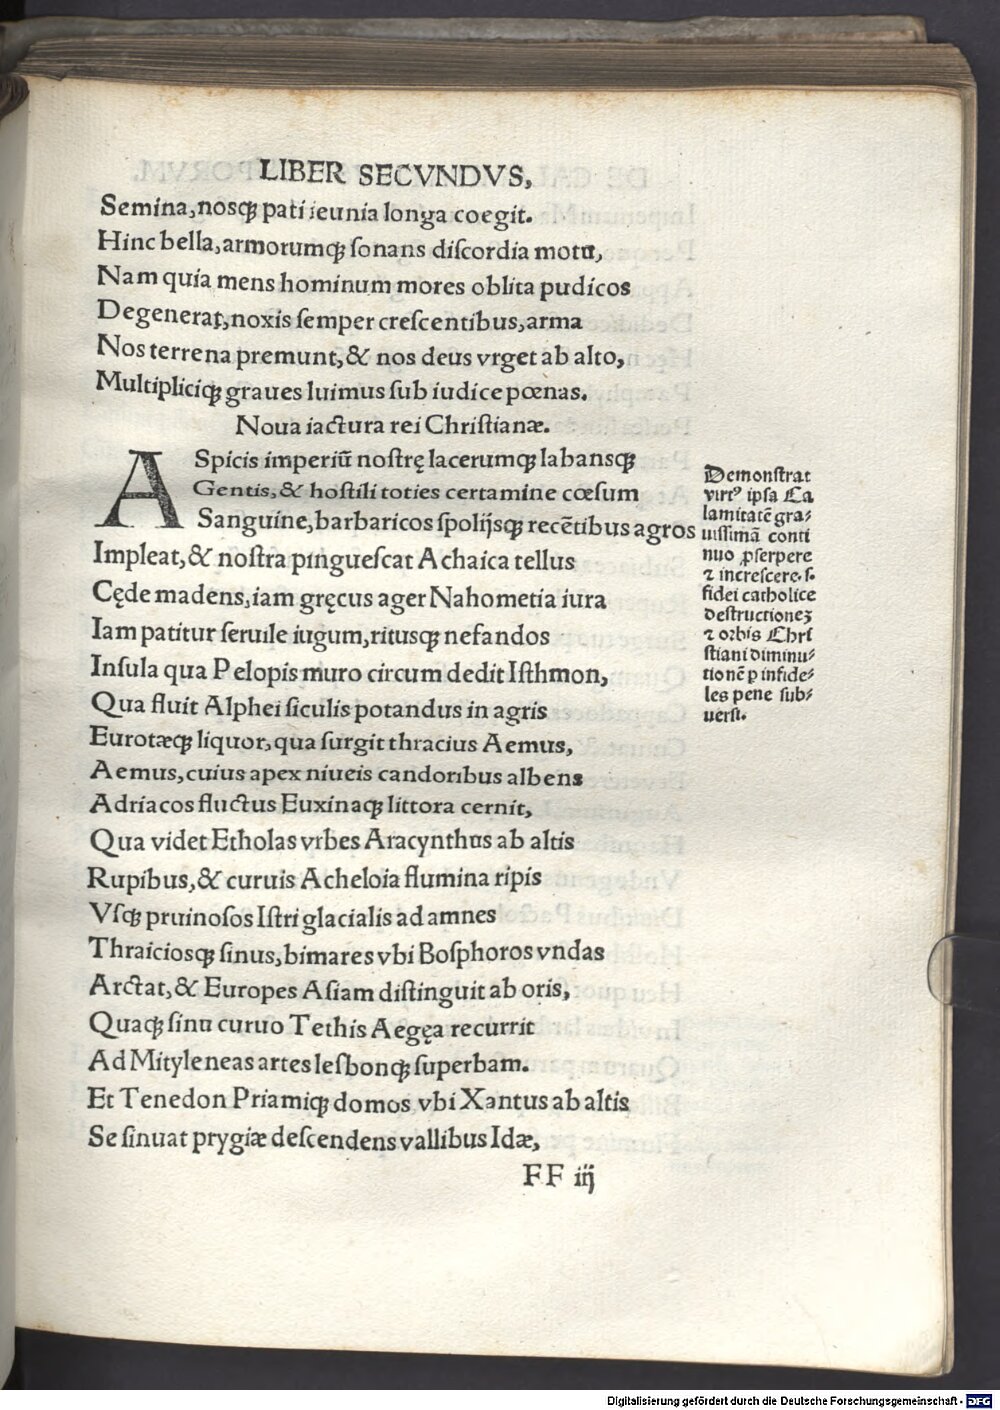 LIBER SECVNDVS,
Semina,nosqꝫ pati ieunia longa coegit.
Hinc bella,armorumqꝫ ſonans diſcordia motu,
Nam quia mens hominum mores oblita pudicos
Degenerat,noxis ſemper creſcentibus,arma
Nos terrena premunt,& nos deus vrget ab alto,
Multipliciqꝫ graues luimus ſub iudice pœnas.
Noua iactura rei Chriſtianæ.
ASpicis imperiũ noſtrę lacerumqꝫ labansqꝫ
Gentis,& hoſtili toties certamine cœſum
Sanguine,barbaricos ſpolijsqꝫ recẽtibus agros
Impleat,& noſtra pingueſcat Achaica tellus
Cęde madens,iam gręcus ager Nahometia iura
Iam patitur ſeruile iugum,ritusqꝫ nefandos
Inſula qua Pelopis muro circum dedit Iſthmon,
Qua fluit Alphei ſiculis potandus in agris
Eurotæqꝫ liquor,qua ſurgit thracius Aemus,
Aemus,cuius apex niueis candoribus albens
Adriacos fluctus Euxinaqꝫ littora cernit,
Qua videt Etholas vrbes Aracynthus ab altis
Rupibus,& curuis Acheloia flumina ripis
Vſqꝫ pruinoſos Iſtri glacialis ad amnes
Thraiciosqꝫ ſinus,bimares vbi Boſphoros vndas
Arctat,& Europes Aſiam diſtinguit ab oris,
Quaqꝫ ſinu curuo Tethis Aegęa recurrit
Ad Mityleneas artes leſbonqꝫ ſuperbam.
Et Tenedon Priamiqꝫ domos vbi Xantus ab altis
Se ſinuat prygiæ deſcendens vallibus Idæ,
FF iij
Demonſtrat
virtꝰ ipſa Ca
lamitatẽ gra⸗
uiſſimã conti
nuo ꝓſerpere
⁊ increſcere.ſ.
fidei catholice
deſtructioneꝫ
⁊ orbis Chri
ſtiani diminu⸗
tionẽ p infide⸗
les pene ſub⸗
uerſi.
Digitalisierung gefördert durch die Deutsche Forschungsgemeinschaft - DFG